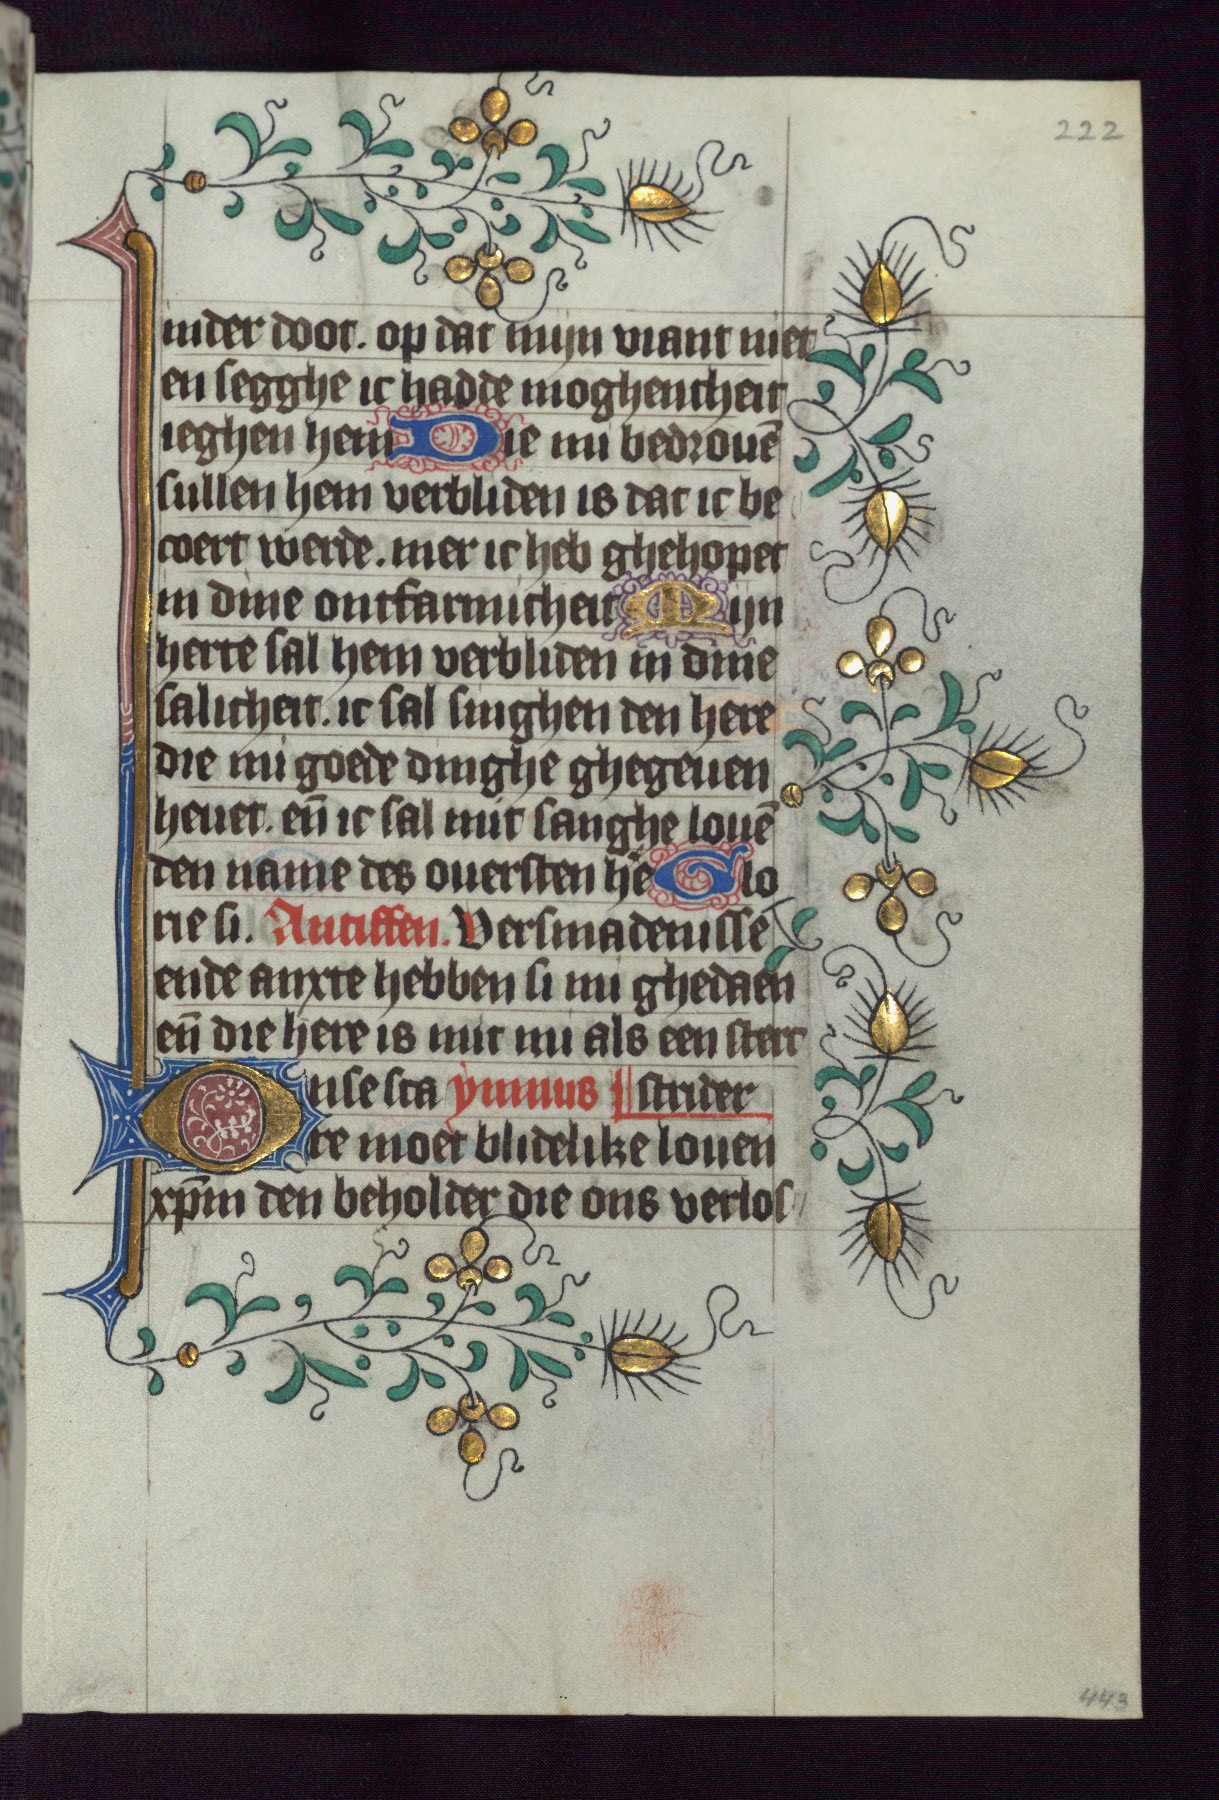 222
inder doot. op dat mijn viant niet
en segghe ic hadde moghentheit
ieghen hem Die mi bedrouē
sullen hem verbliden is dat ic be
roert werde. mer ic heb ghehopet
in dine ontfarmicheit Mijn
herte sal hem verbliden in dine
salicheit. ic sal singhen den here
die mi goede dinghe ghegeuen
heuet. en̄ ic sal mit sanghe louē
den name des ouersten hē Glo
rie si. Antiffen. Versmadenisse
ende anxte hebben si mi ghedaen
en̄ die here is mit mi als een sterc
strider
Onse sca ymnus
re moet blidelike louen
xp̄m den beholder die ons verlos
443